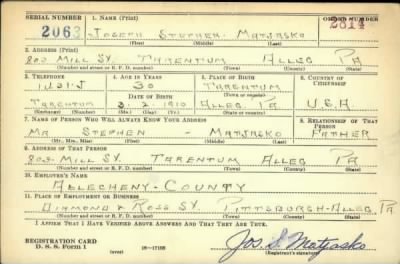 SERIAL NUMBER 1. NAME (Print) ORDER NUMBER
2063 JOSEPH STEPHEN MATJASKO 2814
(First) (Middle) (Last)
2. ADDRESS (Print)
802 MILL ST. TARENTUM ALLEG PA
(Number and street or R. F. D. number) (Town) (County) (State)
3. TELEPHONE 4. AGE IN YEARS 5. PLACE OF BIRTH 6. COUNTRY OF CITIZENSHIP
1431-J 30 TARENTUM
DATE OF BIRTH (Town or county)
TARENTUM 3. 2. 1910 ALLEG. PA U.S.A
(Exchange) (Number) (Mo.) (Day) (Yr.) (State or country)
7. NAME OF PERSON WHO WILL ALWAYS KNOW YOUR ADDRESS 8. RELATIONSHIP OF THAT PERSON
MR STEPHEN - MATJASKO FATHER
(Mr., Mrs., Miss) (First) (Middle) (Last)
9. ADDRESS OF THAT PERSON
802 MILL ST. TARENTUM ALLEG PA
(Number and street or R. F. D. number) (Town) (County) (State)
10. EMPLOYER'S NAME
ALLEGHENY-COUNTY
11. PLACE OF EMPLOYMENT OR BUSINESS
DIAMOND & ROSS ST PITTSBURGH-ALLEG PA
(Number and street or R. F. D. number) (Town) (County) (State)
I AFFIRM THAT I HAVE VERIFIED ABOVE ANSWERS AND THAT THEY ARE TRUE.
REGISTRATION CARD
D. S. S. Form 1 (over) 16-17105 Jos. S. Matjasko
(Registrant's signature)